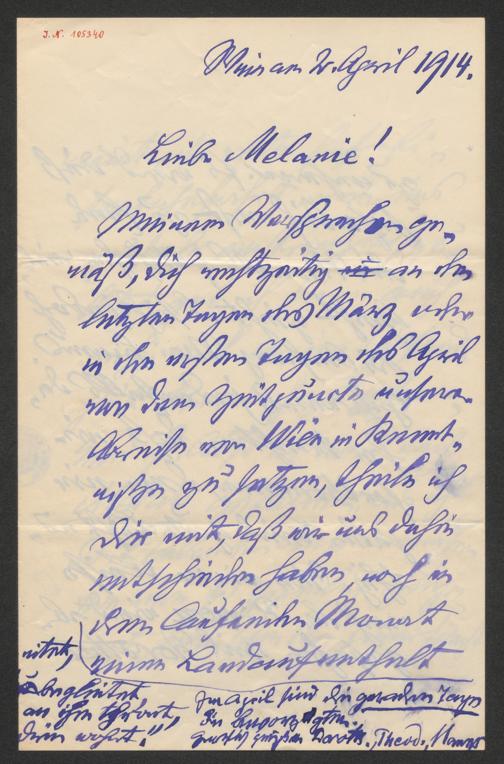 J. N. 105340
Wien am 2. April 1914.
Liebe Melanie!
Meinem Versprechen ge-
mäß, dich rechtzeitig in an den
letzten Tagen des März oder
in den ersten Tagen des April
von dem Zeitpuncte unserer
Abreise von Wien in Kennt-
niß zu setzen, theile ich
dir mit, daß wir uns dahin
entschieden haben, noch in
dem laufenden Monat
einen Landaufenthalt
begleitet
an ihn
wohnt."
Im April sind die geraden Tage
die
grüßen Theod.,